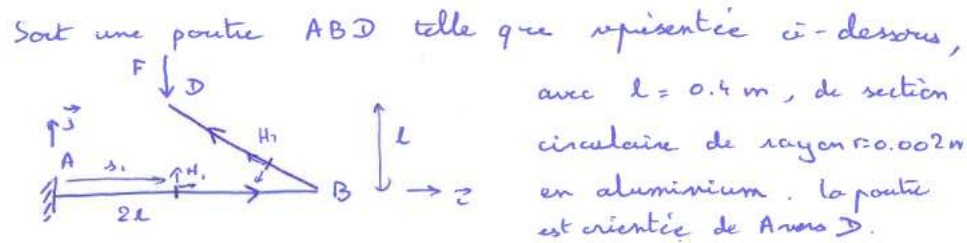 Soit une poutre ABD telle que représentée ci-dessous,
F D
avec l = 0.4 m, de section
j A s₁ H₁ H₂ l
circulaire de rayon r=0.002m
2l B z
en aluminium. la poutre
est orientée de A vers D.